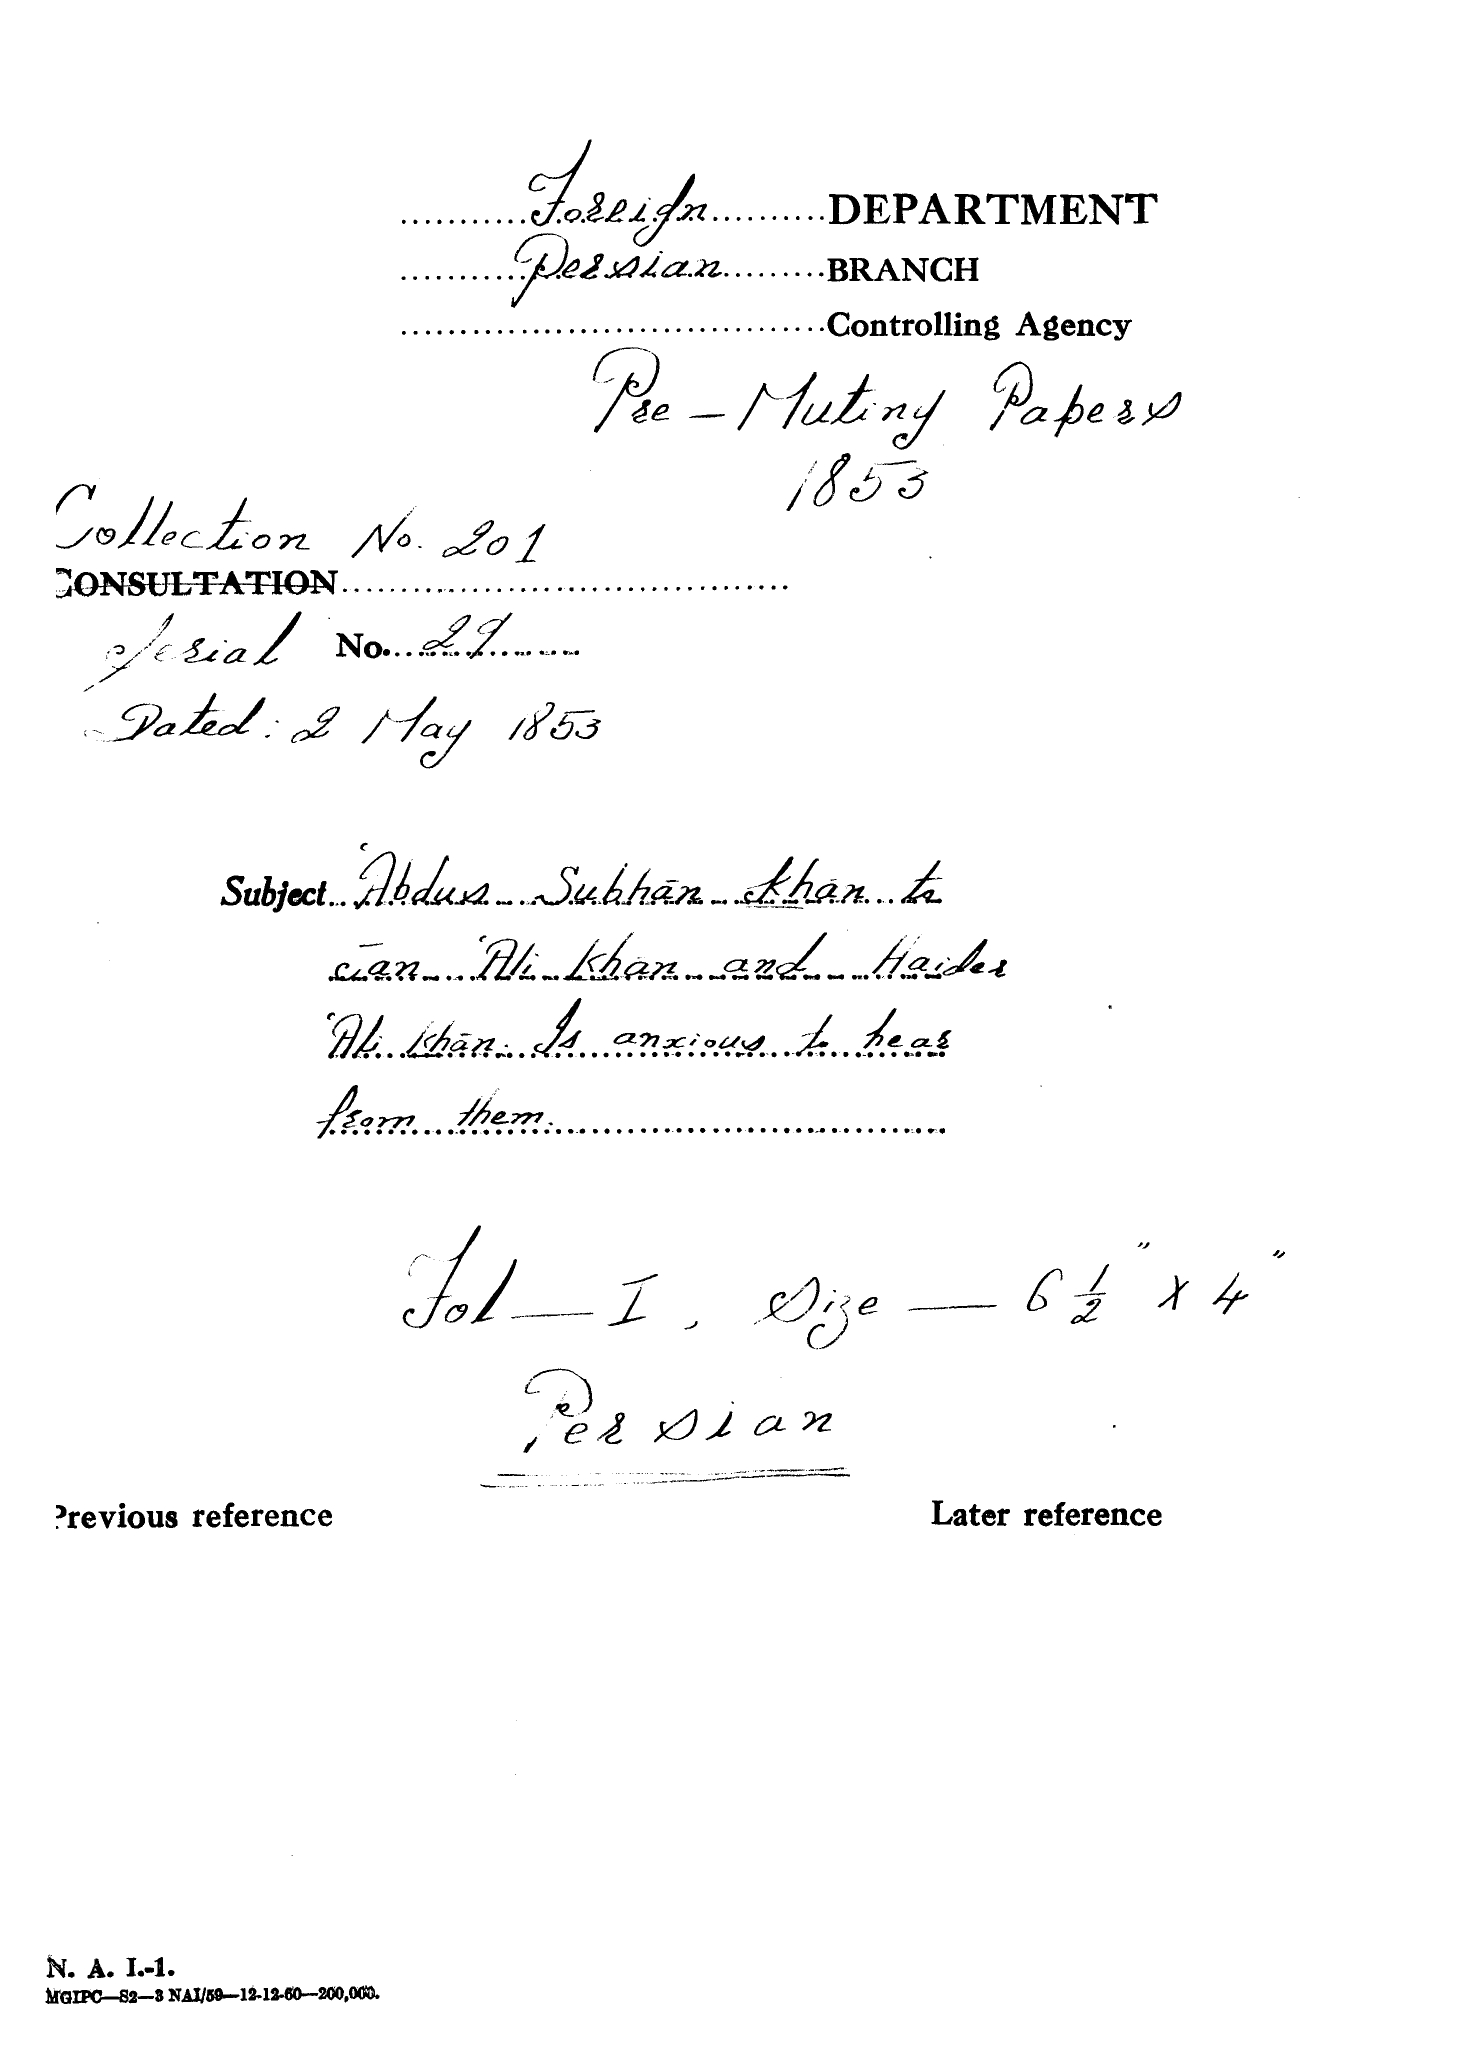 Foreign DEPARTMENT
Persian BRANCH
Controlling Agency
Pre-Mutiny Papers
1853
Collection No. 201
CONSULTATION
Serial No. 29
Dated: 2 May 1853
Subject 'Abdus Subhān Khān to
'Ali Khan and Haider
'Ali Khān. Is anxious to hear
from them.
Fol - I, Size - 6 1/2" X 4"
Persian
Previous reference Later reference
N. A. I.-1.
MGIPC—S2—3 NAI/59—12-12-60—200,000.